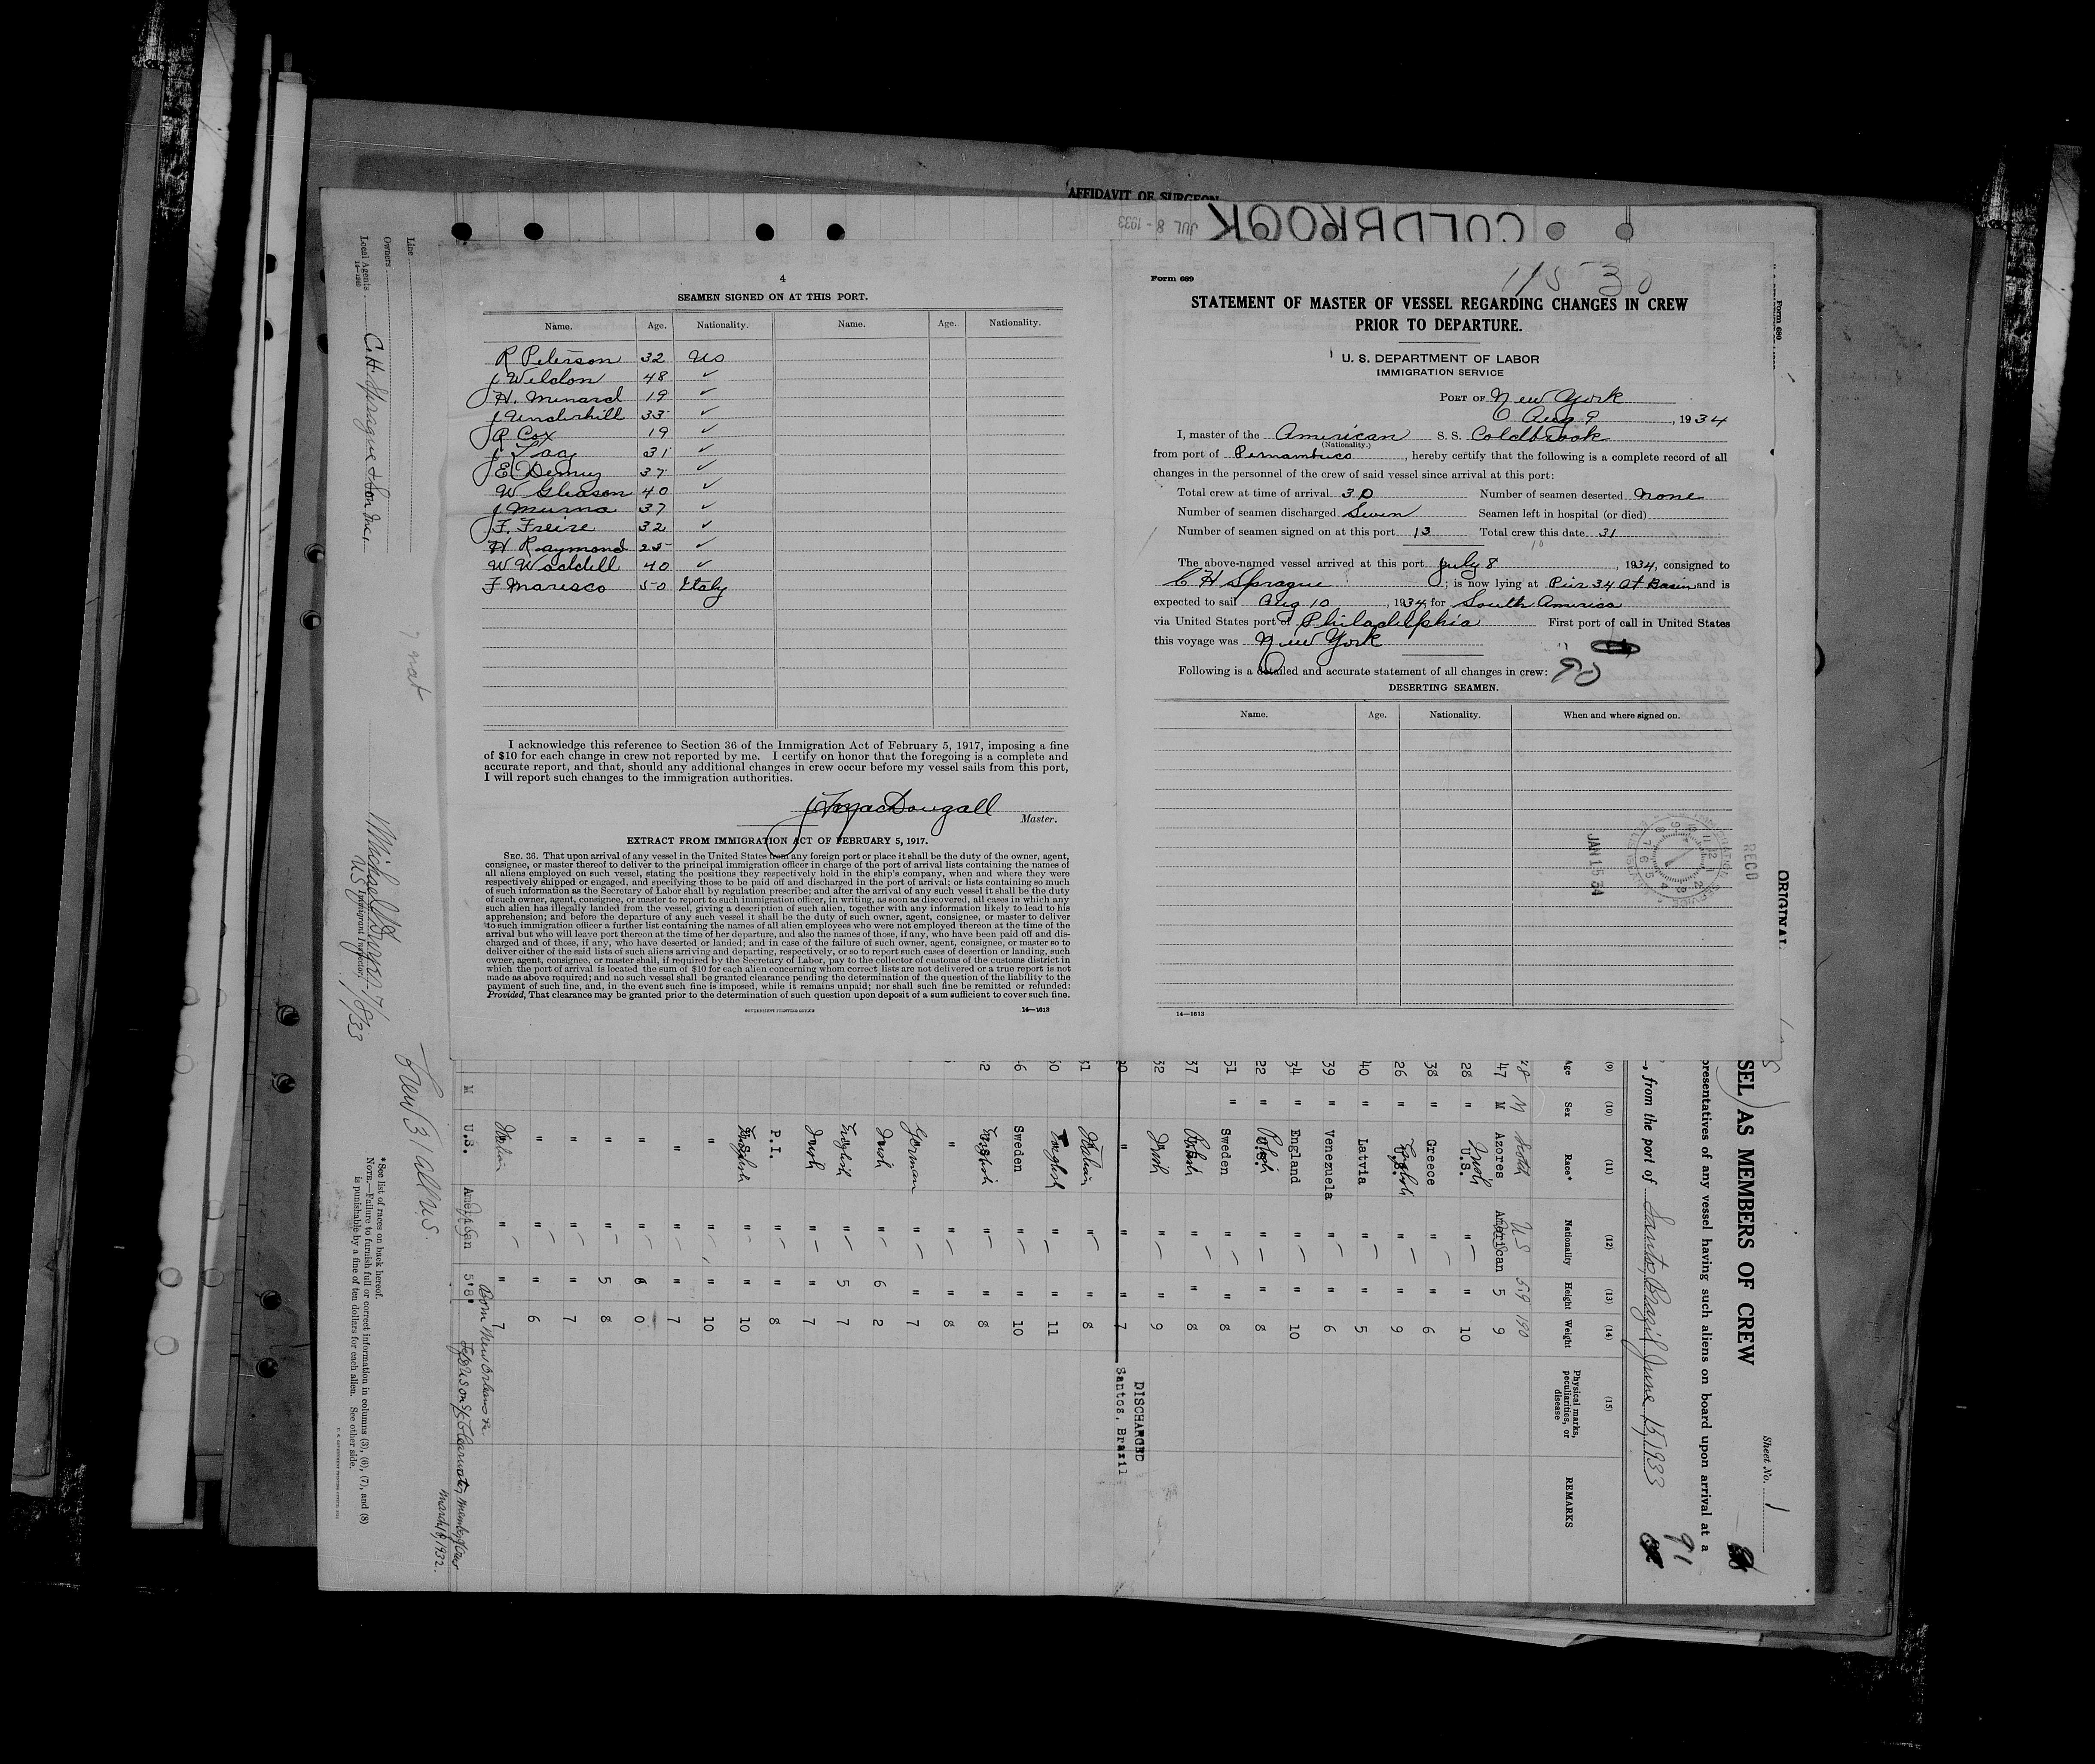 AFFIDAVIT OF SURGEON
COLDBROOK
JUL 8 - 1933
4
SEAMEN SIGNED ON AT THIS PORT.
Name. Age. Nationality. Name. Age. Nationality.
R Peterson 32 US
J Weldon 48 ✓
H. Minard 19 ✓
J Underhill 33 ✓
R Cox 19 ✓
J 31 ✓
E 37 ✓
W Gleason 40 ✓
J Murna 37 ✓
F. Freire 32 ✓
H Raymond 25 ✓
W Waddell 40 ✓
F Maresco 50 Italy
I acknowledge this reference to Section 36 of the Immigration Act of February 5, 1917, imposing a fine
of $10 for each change in crew not reported by me. I certify on honor that the foregoing is a complete and
accurate report, and that, should any additional changes in crew occur before my vessel sails from this port,
I will report such changes to the immigration authorities.
MacDougall
Master.
EXTRACT FROM IMMIGRATION ACT OF FEBRUARY 5, 1917.
SEC. 36. That upon arrival of any vessel in the United States from any foreign port or place it shall be the duty of the owner, agent,
consignee, or master thereof to deliver to the principal immigration officer in charge of the port of arrival lists containing the names of
all aliens employed on such vessel, stating the positions they respectively hold in the ship's company, when and where they were
respectively shipped or engaged, and specifying those to be paid off and discharged in the port of arrival; or lists containing so much
of such information as the Secretary of Labor shall by regulation prescribe; and after the arrival of any such vessel it shall be the duty
of such owner, agent, consignee, or master to report to such immigration officer, in writing, as soon as discovered, all cases in which any
such alien has illegally landed from the vessel, giving a description of such alien, together with any information likely to lead to his
apprehension; and before the departure of any such vessel it shall be the duty of such owner, agent, consignee, or master to deliver
to such immigration officer a further list containing the names of all alien employees who were not employed thereon at the time of the
arrival but who will leave port thereon at the time of her departure, and also the names of those, if any, who have been paid off and dis-
charged and of those, if any, who have deserted or landed; and in case of the failure of such owner, agent, consignee, or master so to
deliver either of the said lists of such aliens arriving and departing, respectively, or so to report such cases of desertion or landing, such
owner, agent, consignee, or master shall, if required by the Secretary of Labor, pay to the collector of customs of the customs district in
which the port of arrival is located the sum of $10 for each alien concerning whom correct lists are not delivered or a true report is not
made as above required; and no such vessel shall be granted clearance pending the determination of the question of the liability to the
payment of such fine, and, in the event such fine is imposed, while it remains unpaid; nor shall such fine be remitted or refunded:
Provided, That clearance may be granted prior to the determination of such question upon deposit of a sum sufficient to cover such fine.
GOVERNMENT PRINTING OFFICE 14—1613
Form 689
11530
STATEMENT OF MASTER OF VESSEL REGARDING CHANGES IN CREW
PRIOR TO DEPARTURE.
U. S. DEPARTMENT OF LABOR
IMMIGRATION SERVICE
PORT OF New York
Aug 9, 1934
I, master of the American S. S. Coldbrook
(Nationality.)
from port of Pernambuco, hereby certify that the following is a complete record of all
changes in the personnel of the crew of said vessel since arrival at this port:
Total crew at time of arrival 30 Number of seamen deserted none
Number of seamen discharged Seven Seamen left in hospital (or died)
Number of seamen signed on at this port 13 Total crew this date 31
The above-named vessel arrived at this port July 8, 1934, consigned to
C H Sprague; is now lying at Pier 34 At Basin and is
expected to sail Aug 10, 1934, for South America
via United States port of Philadelphia First port of call in United States
this voyage was New York
Following is a detailed and accurate statement of all changes in crew: 90
DESERTING SEAMEN.
Name. Age. Nationality. When and where signed on.
JAN 15 34
REC'D
14—1613
Form 680
ORIGINAL
Sheet No. 1
SEL AS MEMBERS OF CREW
presentatives of any vessel having such aliens on board upon arrival at a
, from the port of Santos, Brazil June 15, 1933
91
(9) (10) (11) (12) (13) (14) (15)
Age Sex Race* Nationality Height Weight Physical marks, peculiarities, or disease REMARKS
48 M Scotch US 5 9 190
47 M Azores American 5 9
28 " Irish U.S. " " 10
38 " Greece " " 6
26 " English U.S. " " 9
40 " Latvia " " 5
39 " Venezuela " " 6
34 " England " " 10
22 " Polish " " 8
51 " Sweden " " 8
37 Polish " " 8
32 Irish " " 9
" " " 7 DISCHARGED Santos, Brazil
Italian " " 8
English " " 11
46 Sweden " " 10
English " " 8
" " " 8
German " " 7
Irish " 6 2
English " 5 7
Irish " " 7
P.I. " " 8
English " " 10
" " " 10
" " " 7
" " 6 0
" " 5 8
" " " 7
" " " 6
Italian " " 7
M U.S. American 5'8" Born New Orleans La
March 18, 1932
Crew 31 all US.
*See list of races on back hereof.
NOTE.—Failure to furnish full or correct information in columns (3), (6), (7), and (8)
is punishable by a fine of ten dollars for each alien. See other side.
Line
Owners
Local Agents C.H. Sprague & Son Inc.
14—1240
US Immigrant Inspector.
7/8/33